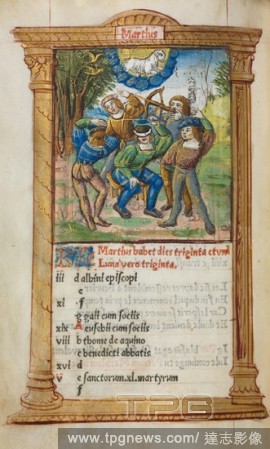 Martius
Martius habet dies triginta et vnu
Luna vero triginta.
iii d albini episcopi
e
xi f
g gaii cum sociis
xix A euschii cum sociis
viii b thome de aquino
c benedicti abbatis
xvi d
v e sanctorum.xl.martyrum
f
TPG
www.tpgnews.com/達志影像